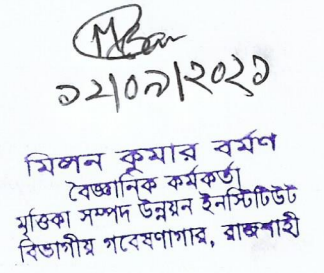 ১২/০৯/২০২১
মিলন কুমার বর্মণ
বৈজ্ঞানিক কর্মকর্তা
মৃত্তিকা সম্পদ উন্নয়ন ইনস্টিটিউট
বিভাগীয় গবেষণাগার, রাজশাহী